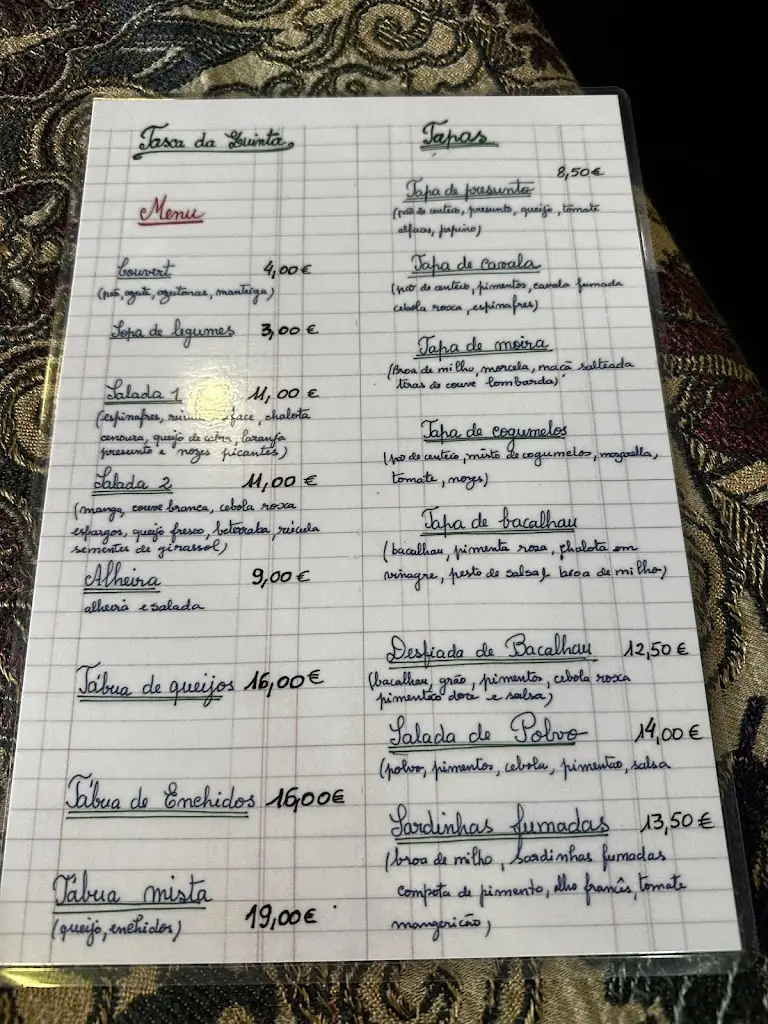 Tasca da Quinta
Menu
Couvert 4,00€
(pão, azeite, azeitonas, manteiga)
Sopa de legumes 3,00€
Salada 1 11,00€
(espinafres, chalota
cenoura, queijo de cabra, laranja
presunto e nozes picantes)
Salada 2 11,00€
(manga, couve branca, cebola roxa
espargos, queijo fresco, beterraba, rúcula
sementes de girassol)
Alheira 9,00€
alheira e salada
Tábua de queijos 16,00€
Tábua de Enchidos 16,00€
Tábua mista
(queijo, enchidos) 19,00€
Tapas
8,50€
Tapa de presunto
(pão de centeio, presunto, queijo, tomate
alface, pepino)
Tapa de cavala
(pão de centeio, pimentos, cavala fumada
cebola roxa, espinafres)
Tapa de moira
(Broa de milho, morcela, maçã salteada
tiras de couve lombarda)
Tapa de cogumelos
(pão de centeio, misto de cogumelos, mozarella,
tomate, nozes)
Tapa de bacalhau
(bacalhau, pimenta rosa, chalota em
vinagre, pesto de salsa, broa de milho)
Desfiada de Bacalhau 12,50€
(bacalhau, grão, pimentos, cebola roxa
pimentão doce e salsa)
Salada de Polvo 14,00€
(polvo, pimentos, cebola, pimentão, salsa
Sardinhas fumadas 13,50€
(broa de milho, sardinhas fumadas
compota de pimento, alho francês, tomate
mangericão)